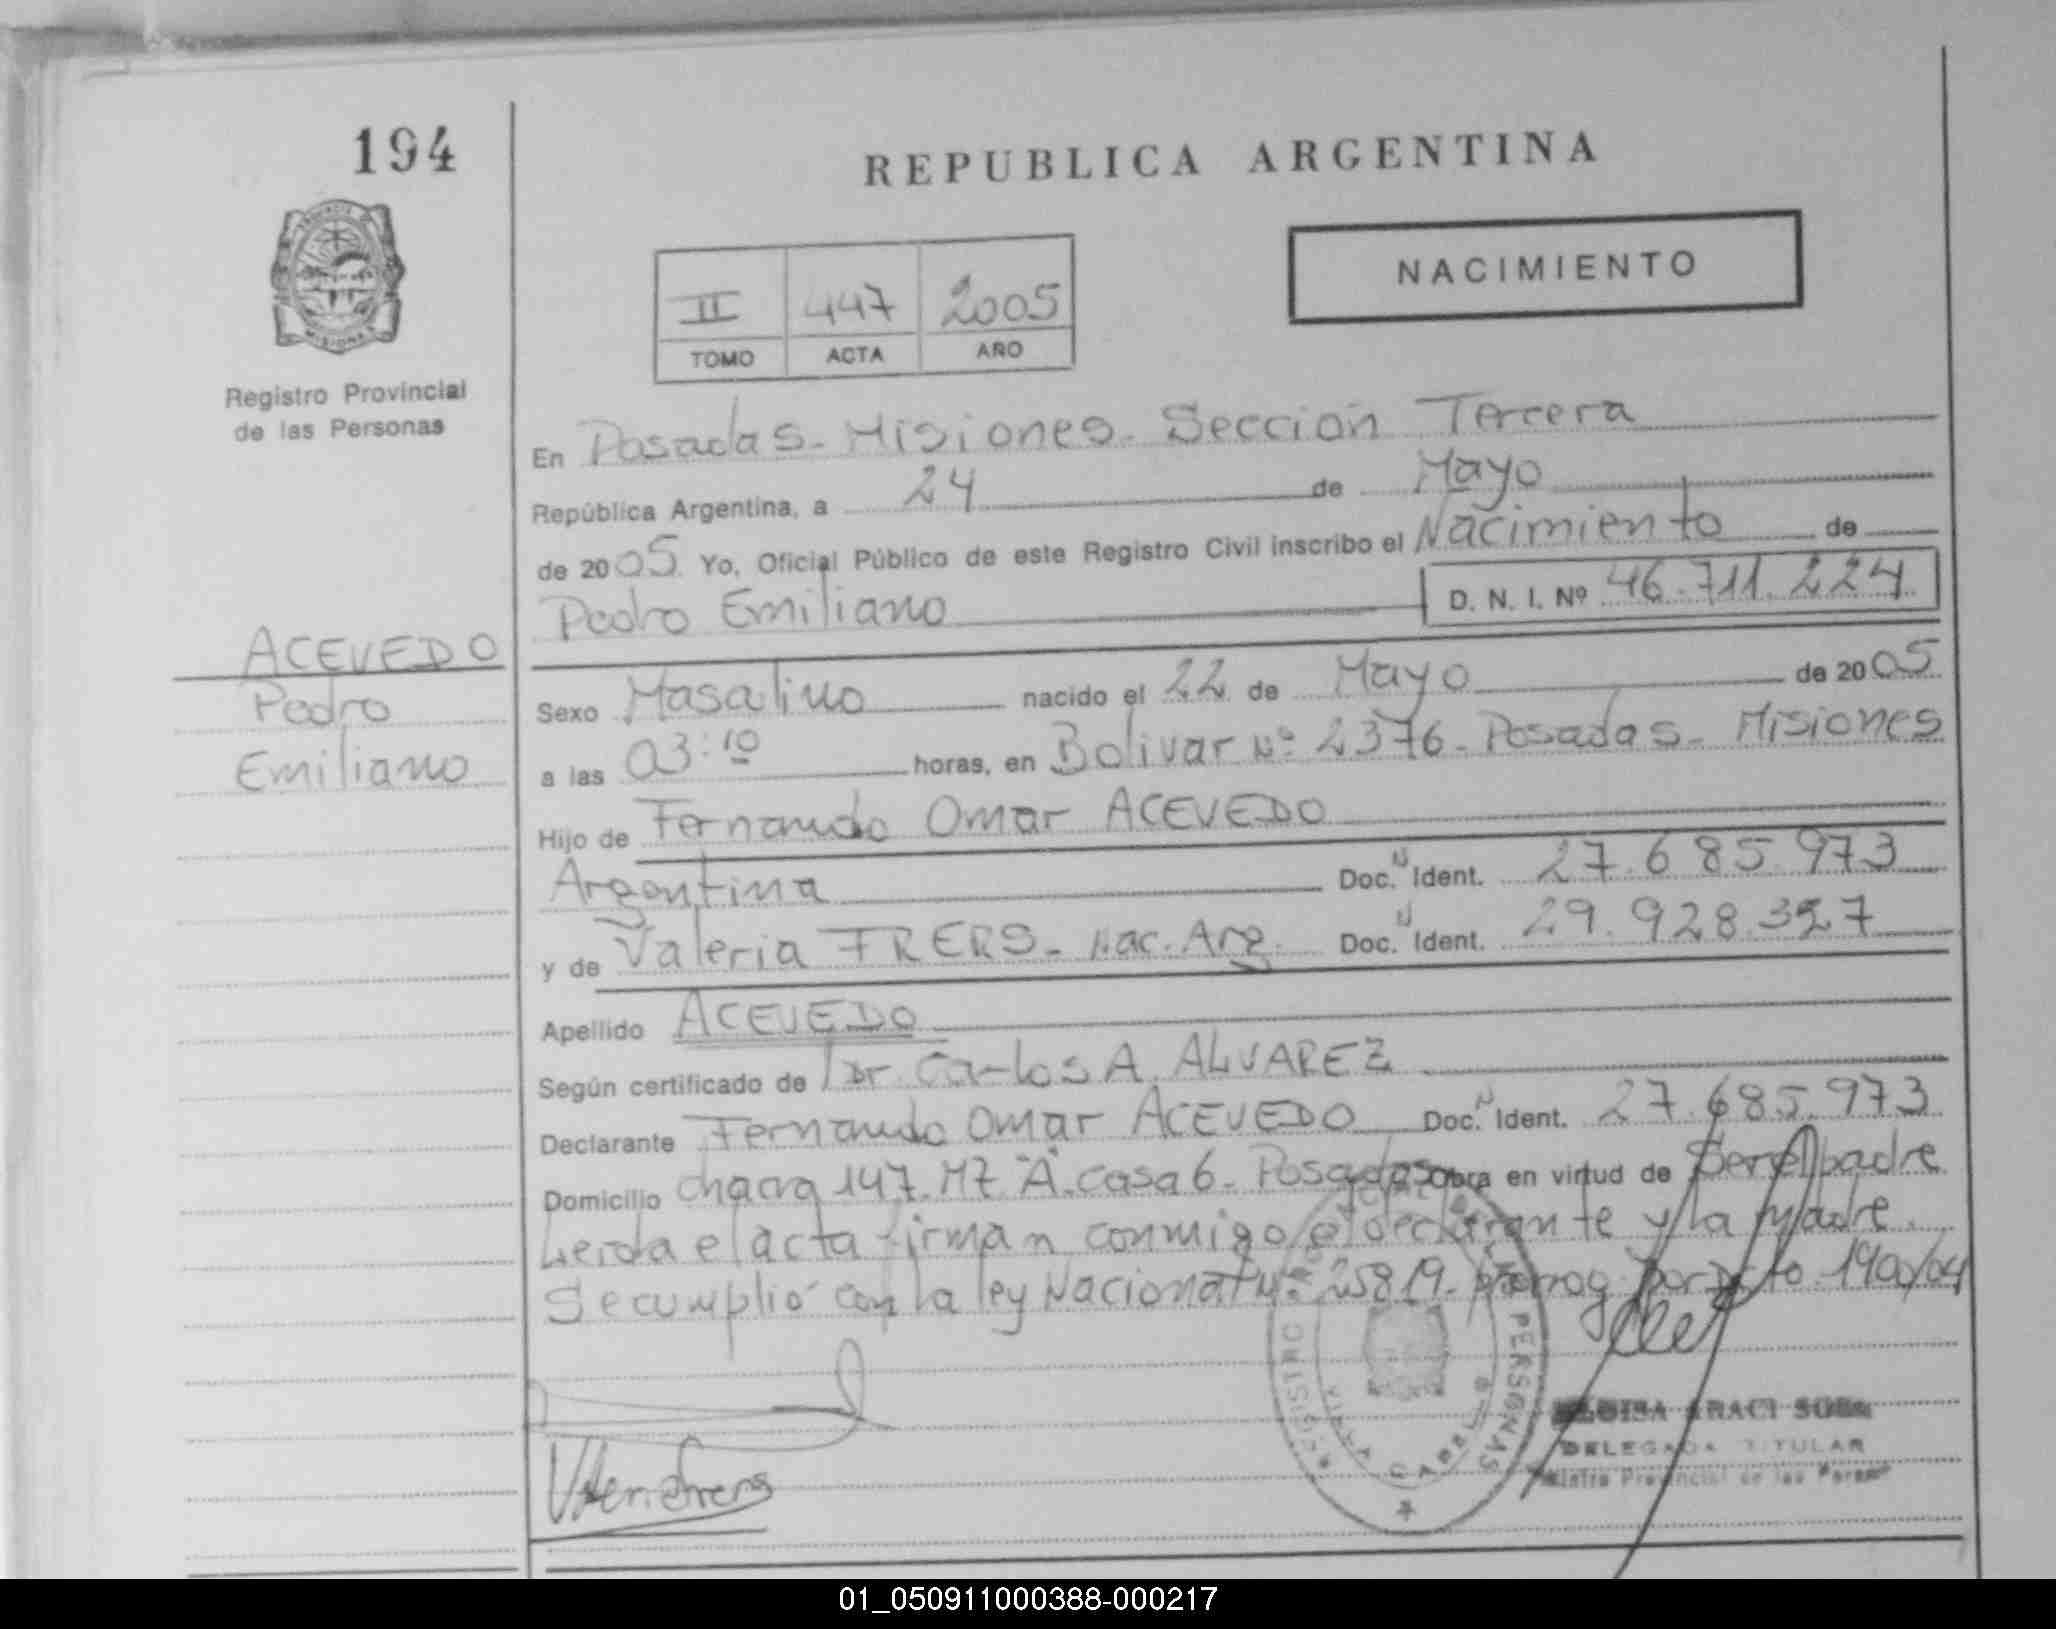 194
REPUBLICA ARGENTINA
NACIMIENTO
II 447 2005
TOMO ACTA AÑO
Registro Provincial
de las Personas
En Posadas - Misiones - Sección Tercera
República Argentina, a 24 de Mayo
de 2005 Yo, Oficial Público de este Registro Civil inscribo el Nacimiento de
Pedro Emiliano D. N. I. Nº 46.711.224
ACEVEDO
Pedro
Emiliano
Sexo Masculino nacido el 22 de Mayo de 2005
a las 03:10 horas, en Bolivar Nº 2376 - Posadas - Misiones
Hijo de Fernando Omar ACEVEDO
Argentina Doc. N Ident. 27.685.973
y de Valeria FRERS - Nac. Arg. Doc. N Ident. 29.928.357
Apellido ACEVEDO
Según certificado de Dr. Carlos A. ALVAREZ
Declarante Fernando Omar ACEVEDO Doc. N Ident. 27.685.973
Domicilio chacra 147. MZ "A" casa 6 - Posadas Obra en virtud de Ser el padre
Leida el acta firman conmigo el declarante y la Madre.
Se cumplió con la ley Nacional Nº 25819 - prorrog. por Dcto 190/04
REGISTRO PERSONAS
VILLA CABELLO
ARACI
DELEGADA TITULAR
Provincial de las
01_050911000388-000217